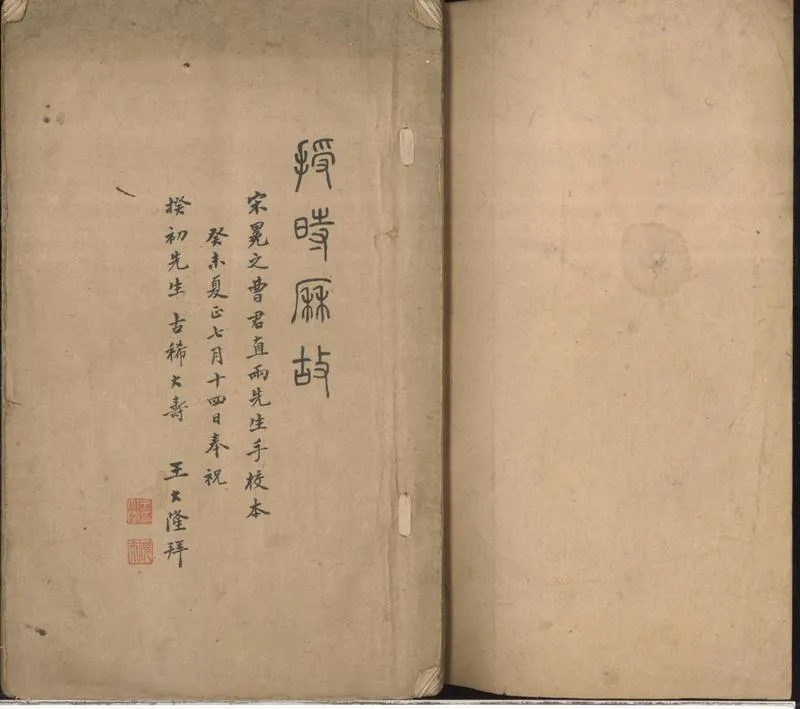 授時厤故
宋冕之曹君直兩先生手校本
癸未夏正七月十四日奉祝
揆初先生古稀大壽　王大隆拜